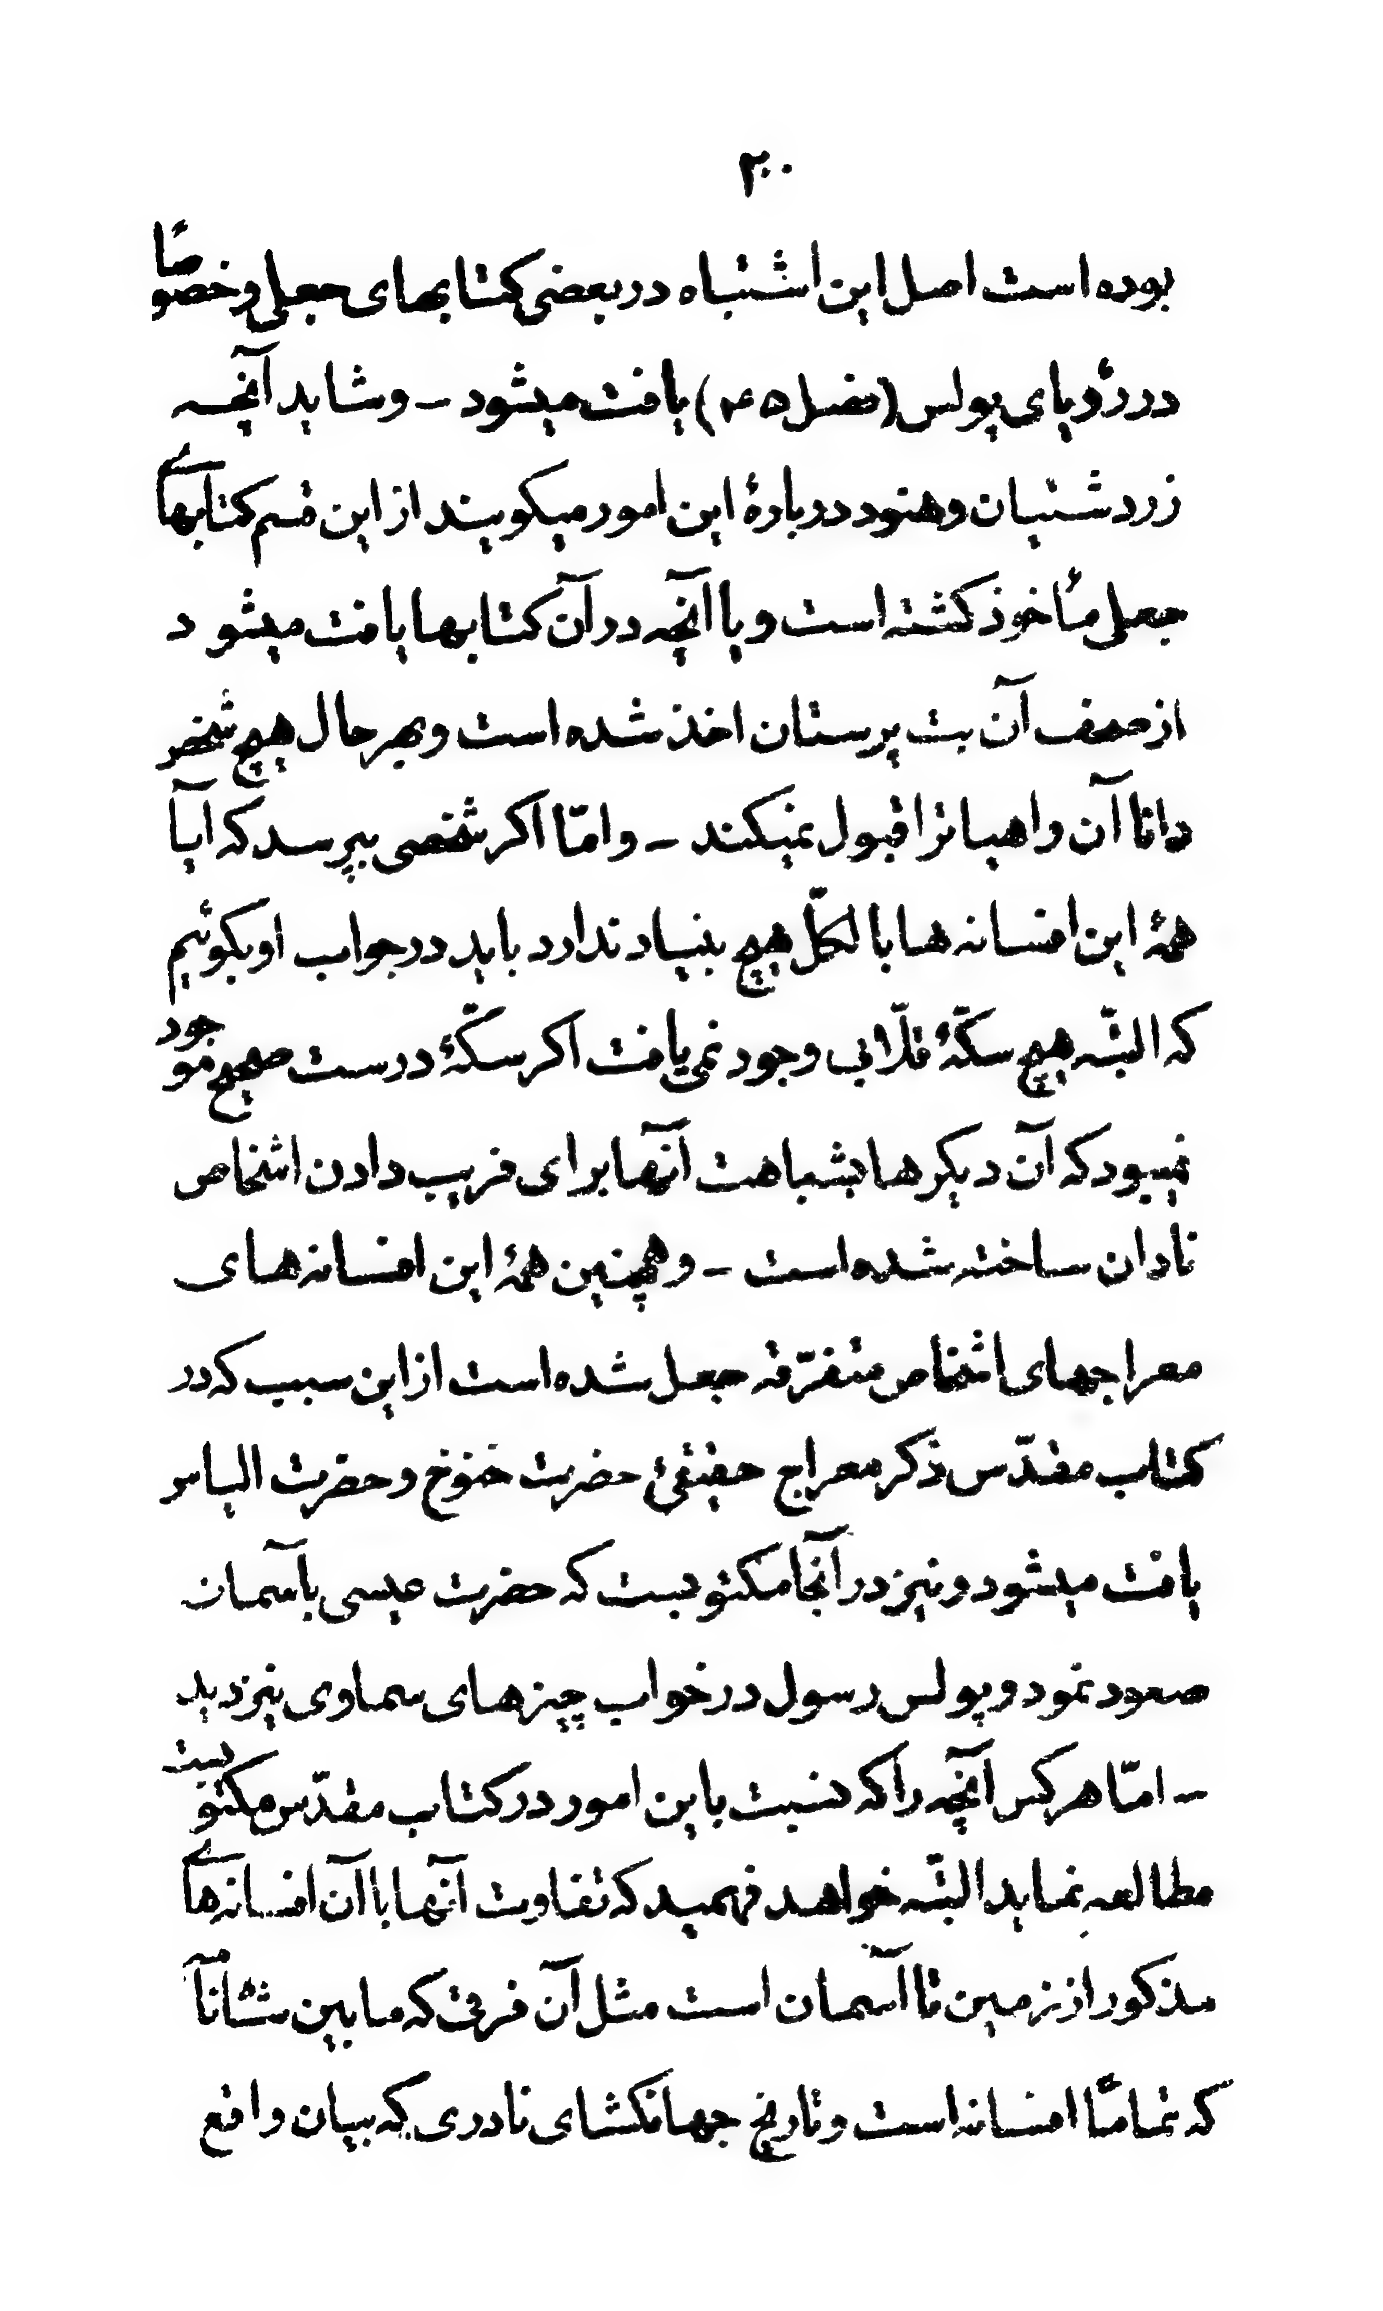 ۲۰۰
بوده است اصل این اشتباه در بعضی کتابهای جعلی و خصوصًا
در رؤیای پولس (فصل ۴۵) یافت میشود - و شاید آنچه
زردشتیان و هنود دربارهٔ این امور میکویند از این قسم کتابهای
جعلی مأخوذ کشته است و یا آنچه در آن کتابها یافت میشود
از صحف آن بت پرستان اخذ شده است و بهر حال هیچ شخص
دانا آن واهیاترا قبول نمیکند - و امّا اکر شخصی بپرسد که آیا
همهٔ این افسانه ها بالکلّ هیچ بنیاد ندارد باید در جواب او بکوئیم
که البتّه هیچ سکّهٔ قلّابی وجود نمی یافت اکر سکّهٔ درست صحیح موجود
نمیبود که آن دیکرها بشباهت آنها برای فریب دادن اشخاص
نادان ساخته شده است - و همچنین همهٔ این افسانه های
معراجهای اشخاص متفرّقه جعل شده است از این سبب که در
کتاب مقدّس ذکر معراج حقیقیٔ حضرت خنوخ و حضرت الیاس
یافت میشود و نیز در آنجا مکتوبست که حضرت عیسی بآسمان
صعود نمود و پولس رسول در خواب چیزهای سماوی نیز دید
- امّا هر کس آنچه را که نسبت باین امور در کتاب مقدّس مکتوبست
مطالعه نماید البتّه خواهد فهمید که تفاوت آنها با آن افسانه های
مذکور از زمین تا آسمان است مثل آن فرقی که مابین شاهنامه
که تمامًا افسانه است و تاریخ جهانکشای نادری که بیان واقع